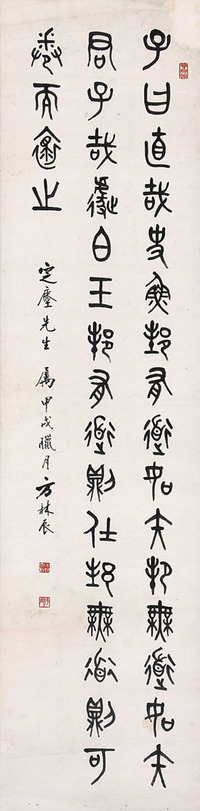 子曰直哉史魚邦有道如矢邦無道如矢
君子哉蘧白玉邦有道則仕邦無道則可
卷而懷之
定塵先生屬甲戌臘月方林辰